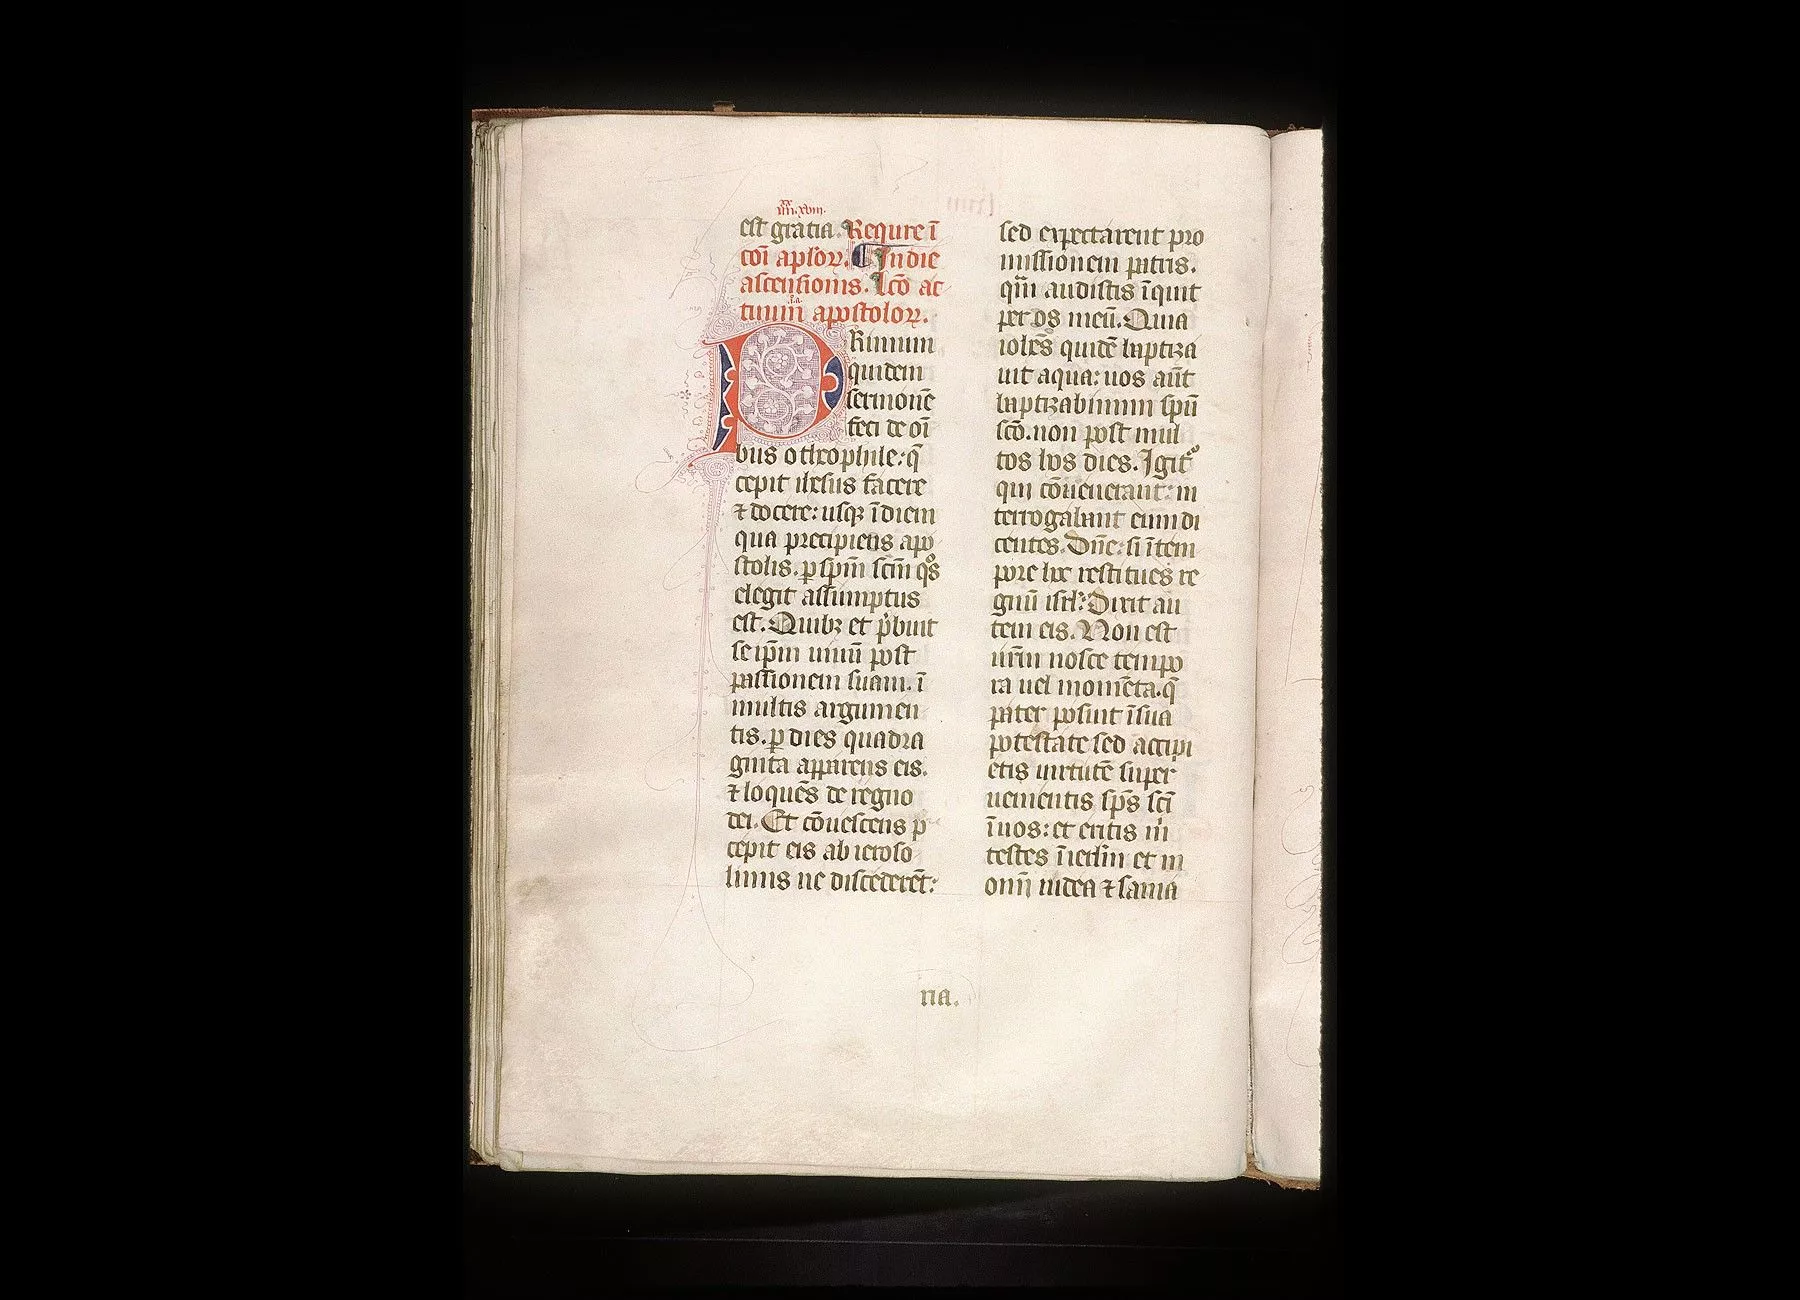 iiii.xviii.
est gratia. Require ī
cōi aploꝝ. ¶ In die
ascensionis. lc̄o ac
tuum apostoloꝝ.
PRimum
quidem
sermonē
feci de oī
bus o theophile: q̄
cepit ihesus facere
⁊ docere: usqꝫ ī diem
qua precipiens apo
stolis. ꝑ spm̄ scm̄ qͦs
elegit assumptus
est. Quibꝫ et p̄buit
se ip̄m uiuū post
passionem suam. ī
multis argumen
tis. ꝑ dies quadra
ginta apparens eis.
⁊ loquēs de regno
dei. Et cōuescens p̄
cepit eis ab ieroso
limis ne discederēt:
sed expectarent pro
missionem patris.
qm̄ audistis īquit
per os meū. Quia
ioh̄es quidē baptiza
uit aqua: uos aūt
baptizabimini spū
sc̄o. non post mul
tos hos dies. Igitͦ
qui cōuenerant: in
terrogabant eum di
centes. Dn̄e: si ī tem
pore hoc restitues re
gnū isrl̄: Dixit au
tem eis. Non est
ur̄m nosce tempo
ra uel momēta. q̄
pater posuit ī sua
potestate sed accipi
etis uirtutē super
uenientis sp̄s sc̄i
ī uos: et eritis m̄
testes ī ierl̄m et in
omī iudea ⁊ sama
ria.